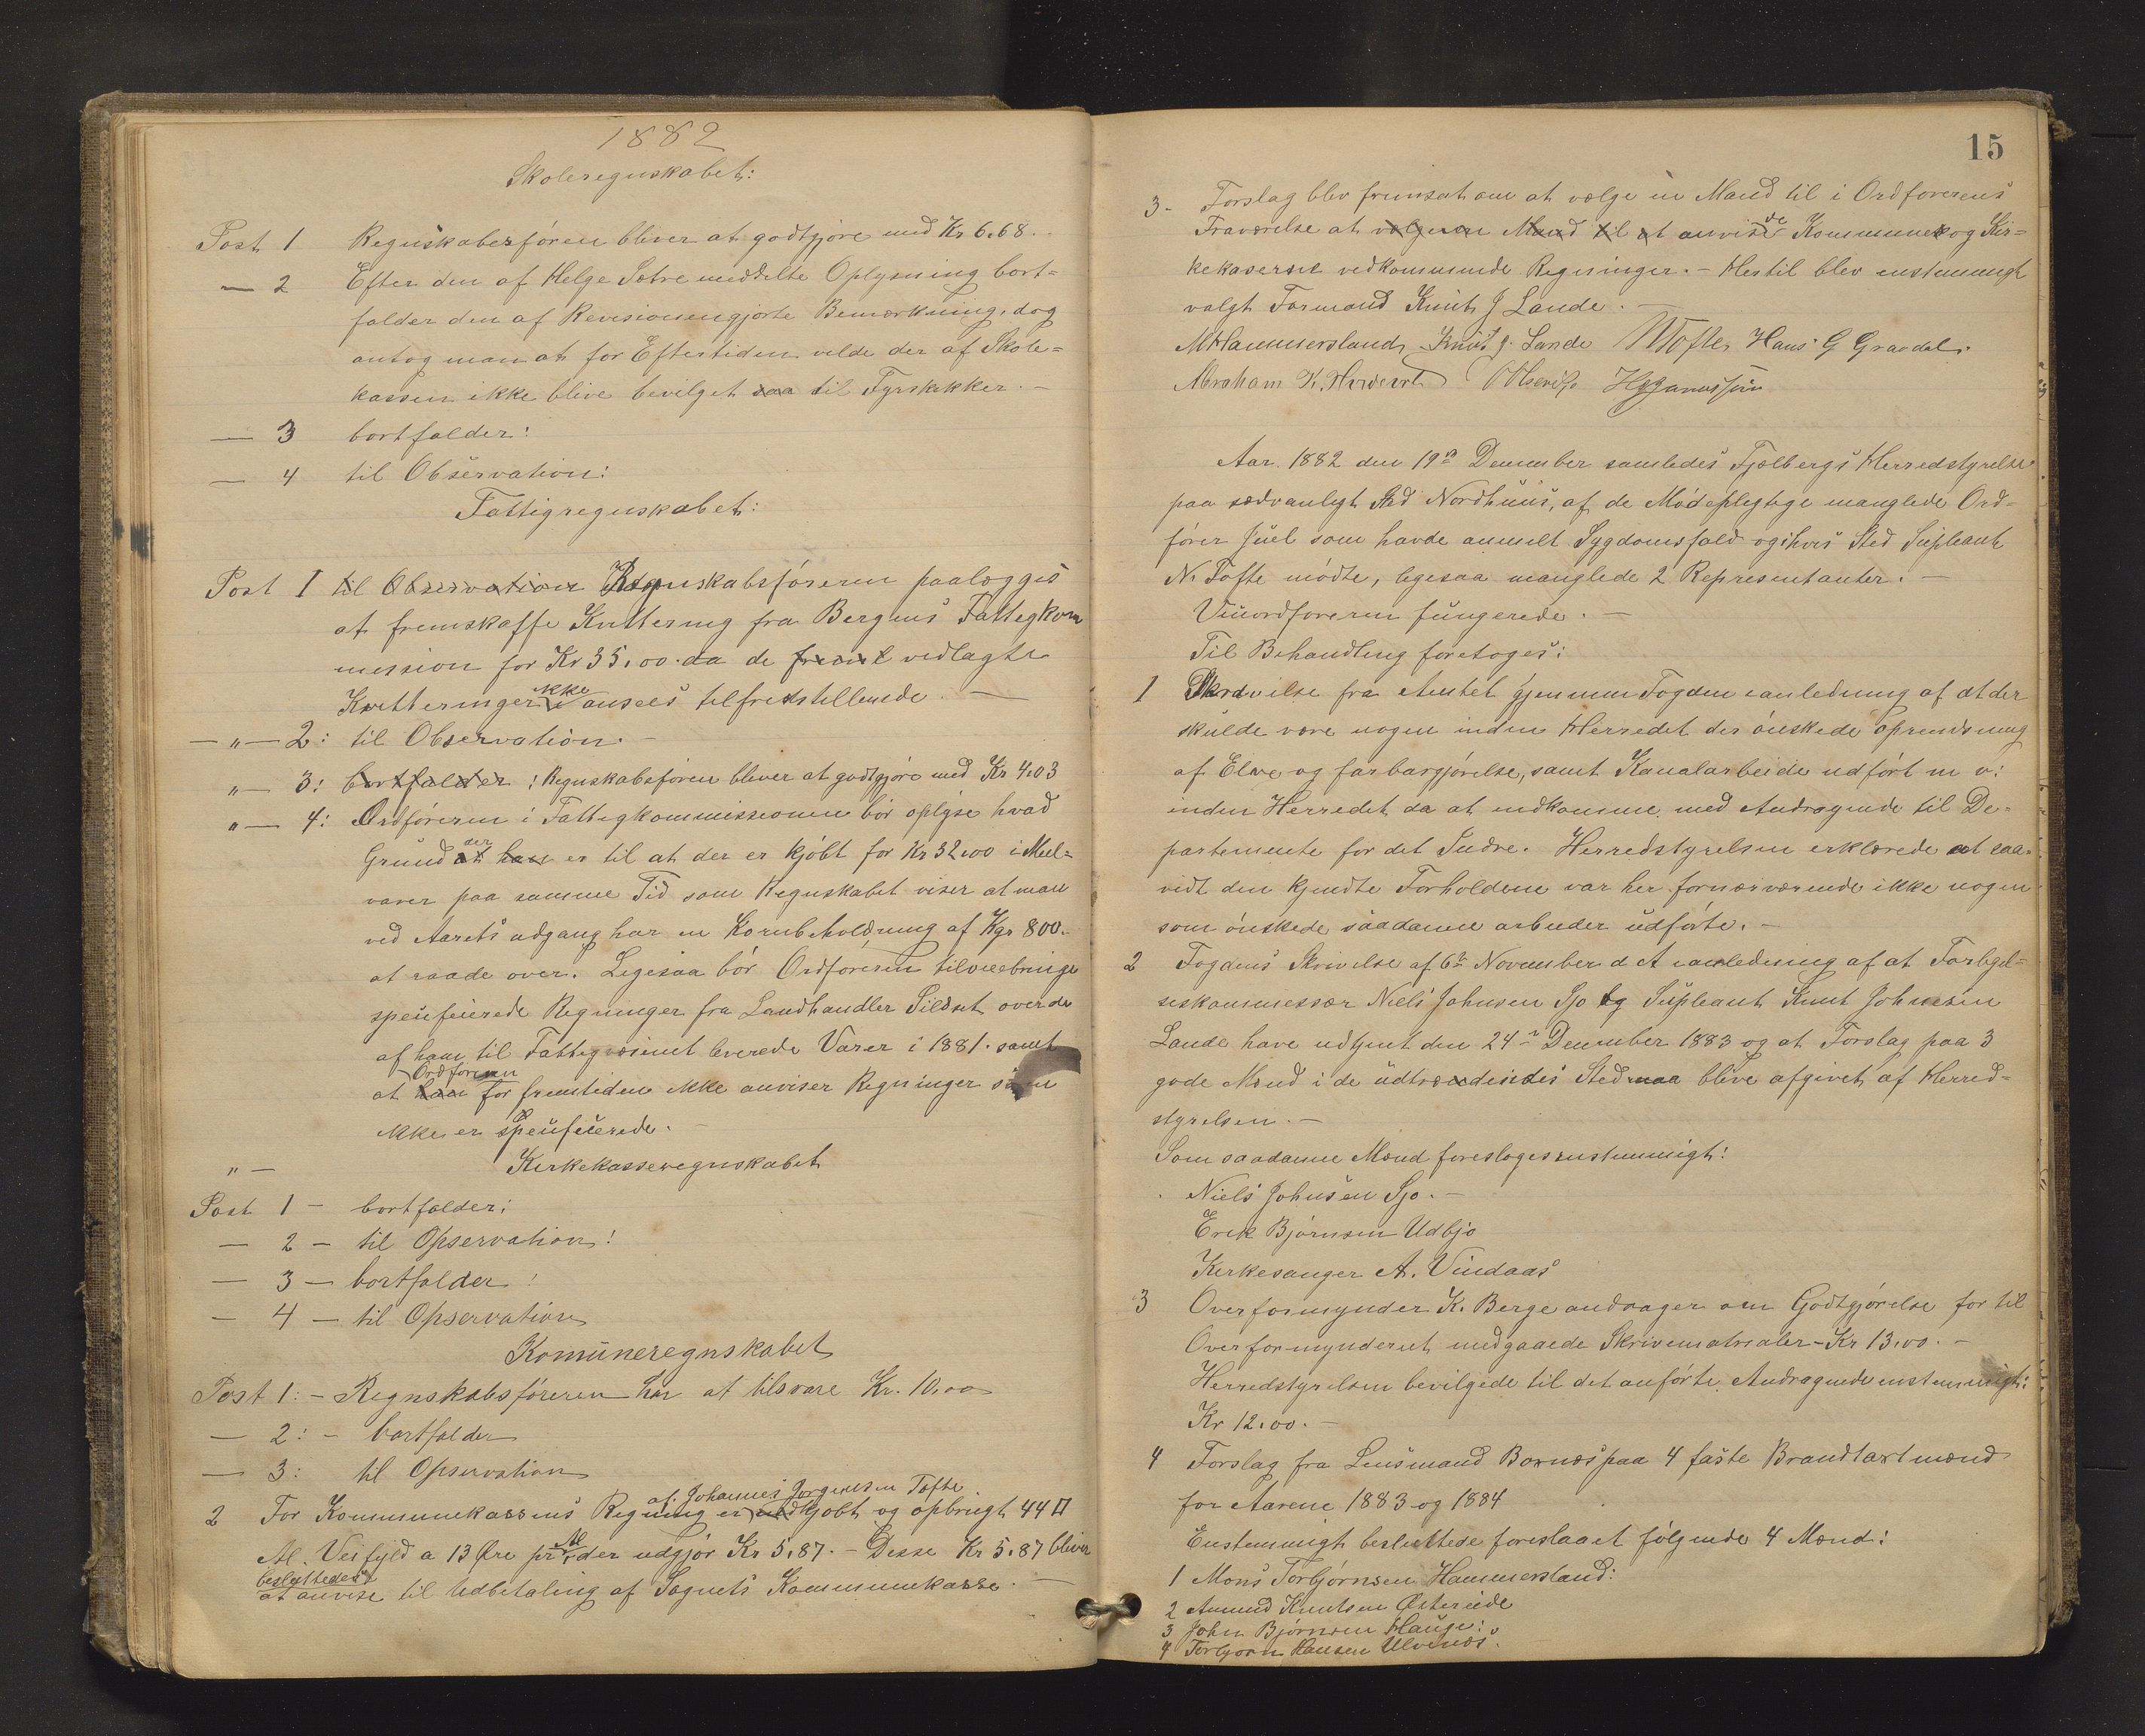 1882
Skoleregnskabet:
Post 1 Regnskabesføren bliver at godtgjøre med Kr 6.68.
— 2 Efter den af Helge Sætre meddelte Oplysning bort=
falder den af Revisionen gjorte Bemærkning, dog
antog man at for Eftertiden vilde der af Skole=
kassen ikke blive bevilget saa til Fyrstikker. —
— 3 bortfalder:
— 4 til Observation:
Fattigregnskabet:
Post 1 til Observation Regnskabsføreren paalægges
at fremskaffe Kvittering fra Bergens Fattigkom
mission for Kr 35,00. da de vedlagte
Kvitteringer ikke ansees tilfredstillende. —
— " — 2: til Observation. —
" — 3: bortfalder: Regnskabsføren bliver at godtgjøre med Kr 4.03
" — 4: Ordføreren i Fattigkommissionen bør oplyse hvad
Grund at han der er til at der er kjøbt for Kr 32,00 i Meel=
varer paa samme Tid som Regnskabet viser at man
ved Aarets udgang har en Kornbeholdning af Kgr 800.
at raade over. Ligesaa bør Ordføreren tilveiebringe
specificerede Regninger fra Landhandler Sildset over de
af ham til Fattigvæsenet leverede Varer i 1881. samt
at han Ordføreren for fremtiden ikke anviser Regninger som
ikke er specificerede. —
" — Kirkekasseregnskabet
Post 1 — bortfalder:
— 2 — til Opservation:
— 3 — bortfalder:
— 4 — til Opservation
Komuneregnskabet
Post 1: - Regnskabsføreren har at tilsvare Kr. 10,00
— 2: - bortfalder
— 3: til Opservation
af Johannes Jørgensen Tofte
2 For Kommunekassens Regning er indkjøbt og opbrugt 44 □
Al. Veifyld a 13 Øre pr Al der udgjør Kr 5,87. — Disse Kr 5,87 bliver
besluttedes
at anvise til Udbetaling af Sognets Kommunekasse. —
15
3- Forslag blev fremsat om at vælge en Mand til i Ordførerens
Fraværelse at vælge en Mand til at anvise de Kommune og Kir=
kekasserne vedkommende Regninger. — Hertil blev enstemmigt
valgt Formand Knut J Lande. —
MHammersland, Knut J. Lande NTofte, Hans G Gravdal.
Abraham K.
Aar 1882 den 19de December samledes Fjelbergs Herredstyrelse
paa sædvanligt Sted Nordhuus, af de Mødepligtige manglede Ord=
fører Juel som havde anmelt Sygdomsfald og i hvis Sted Supleant
N. Tofte mødte, ligesaa manglede 2 Representanter. —
Viceordføreren fungerede. —
Til Behandling foretoges:
1 Skrivelse fra Amtet gjennem Fogden i anledning af at der
skulde være nogen inden Herredet der ønskede oprensning
af Elve og farbargjørelse, samt Kanalarbeide udført m v:
inden Herredet da at indkomme med Andragende til De=
partemente for det Indre. Herredstyrelsen erklærede at saa=
vidt den kjendte Forholdene var her fornærværende ikke nogen
som ønskede saadanne arbeider udførte. —
2 Fogdens Skrivelse af 6te November d A i anledning af at Forligel=
seskommessær Niels Johnsen Sjo og Supleant Knut Johnesen
Lande have udtjent den 24de December 1883 og at Forslag paa 3
gode Mænd i de udtrædendes Sted maa blive afgivet af Herred=
styrelsen. —
Som saadanne Mænd foresloges enstemmigt:
Niels Johnsen Sjo. —
Erik Bjørnsen Udbjo
Kirkesanger A. Vindaas
3 Overformynder K. Berge andrager om Godtgjørelse for til
Overformynderiet medgaaede Skrivematrialer - Kr 13,00. —
Herredstyrelsen bevilgede til det anførte Andragende enstemmigt:
Kr 12,00. —
4 Forslag fra Lensmand Bornæs paa 4 faste Brandtaxtmænd
for Aarene 1883 og 1884
Enstemmigt besluttede foreslaaet følgende 4 Mænd:
1 Mons Torbjørnsen Hammersland:
2 Amund Knutsen Østereide
3 John Bjørnsen Hauge:
4 Torbjørn Hansen Ulvenæs.